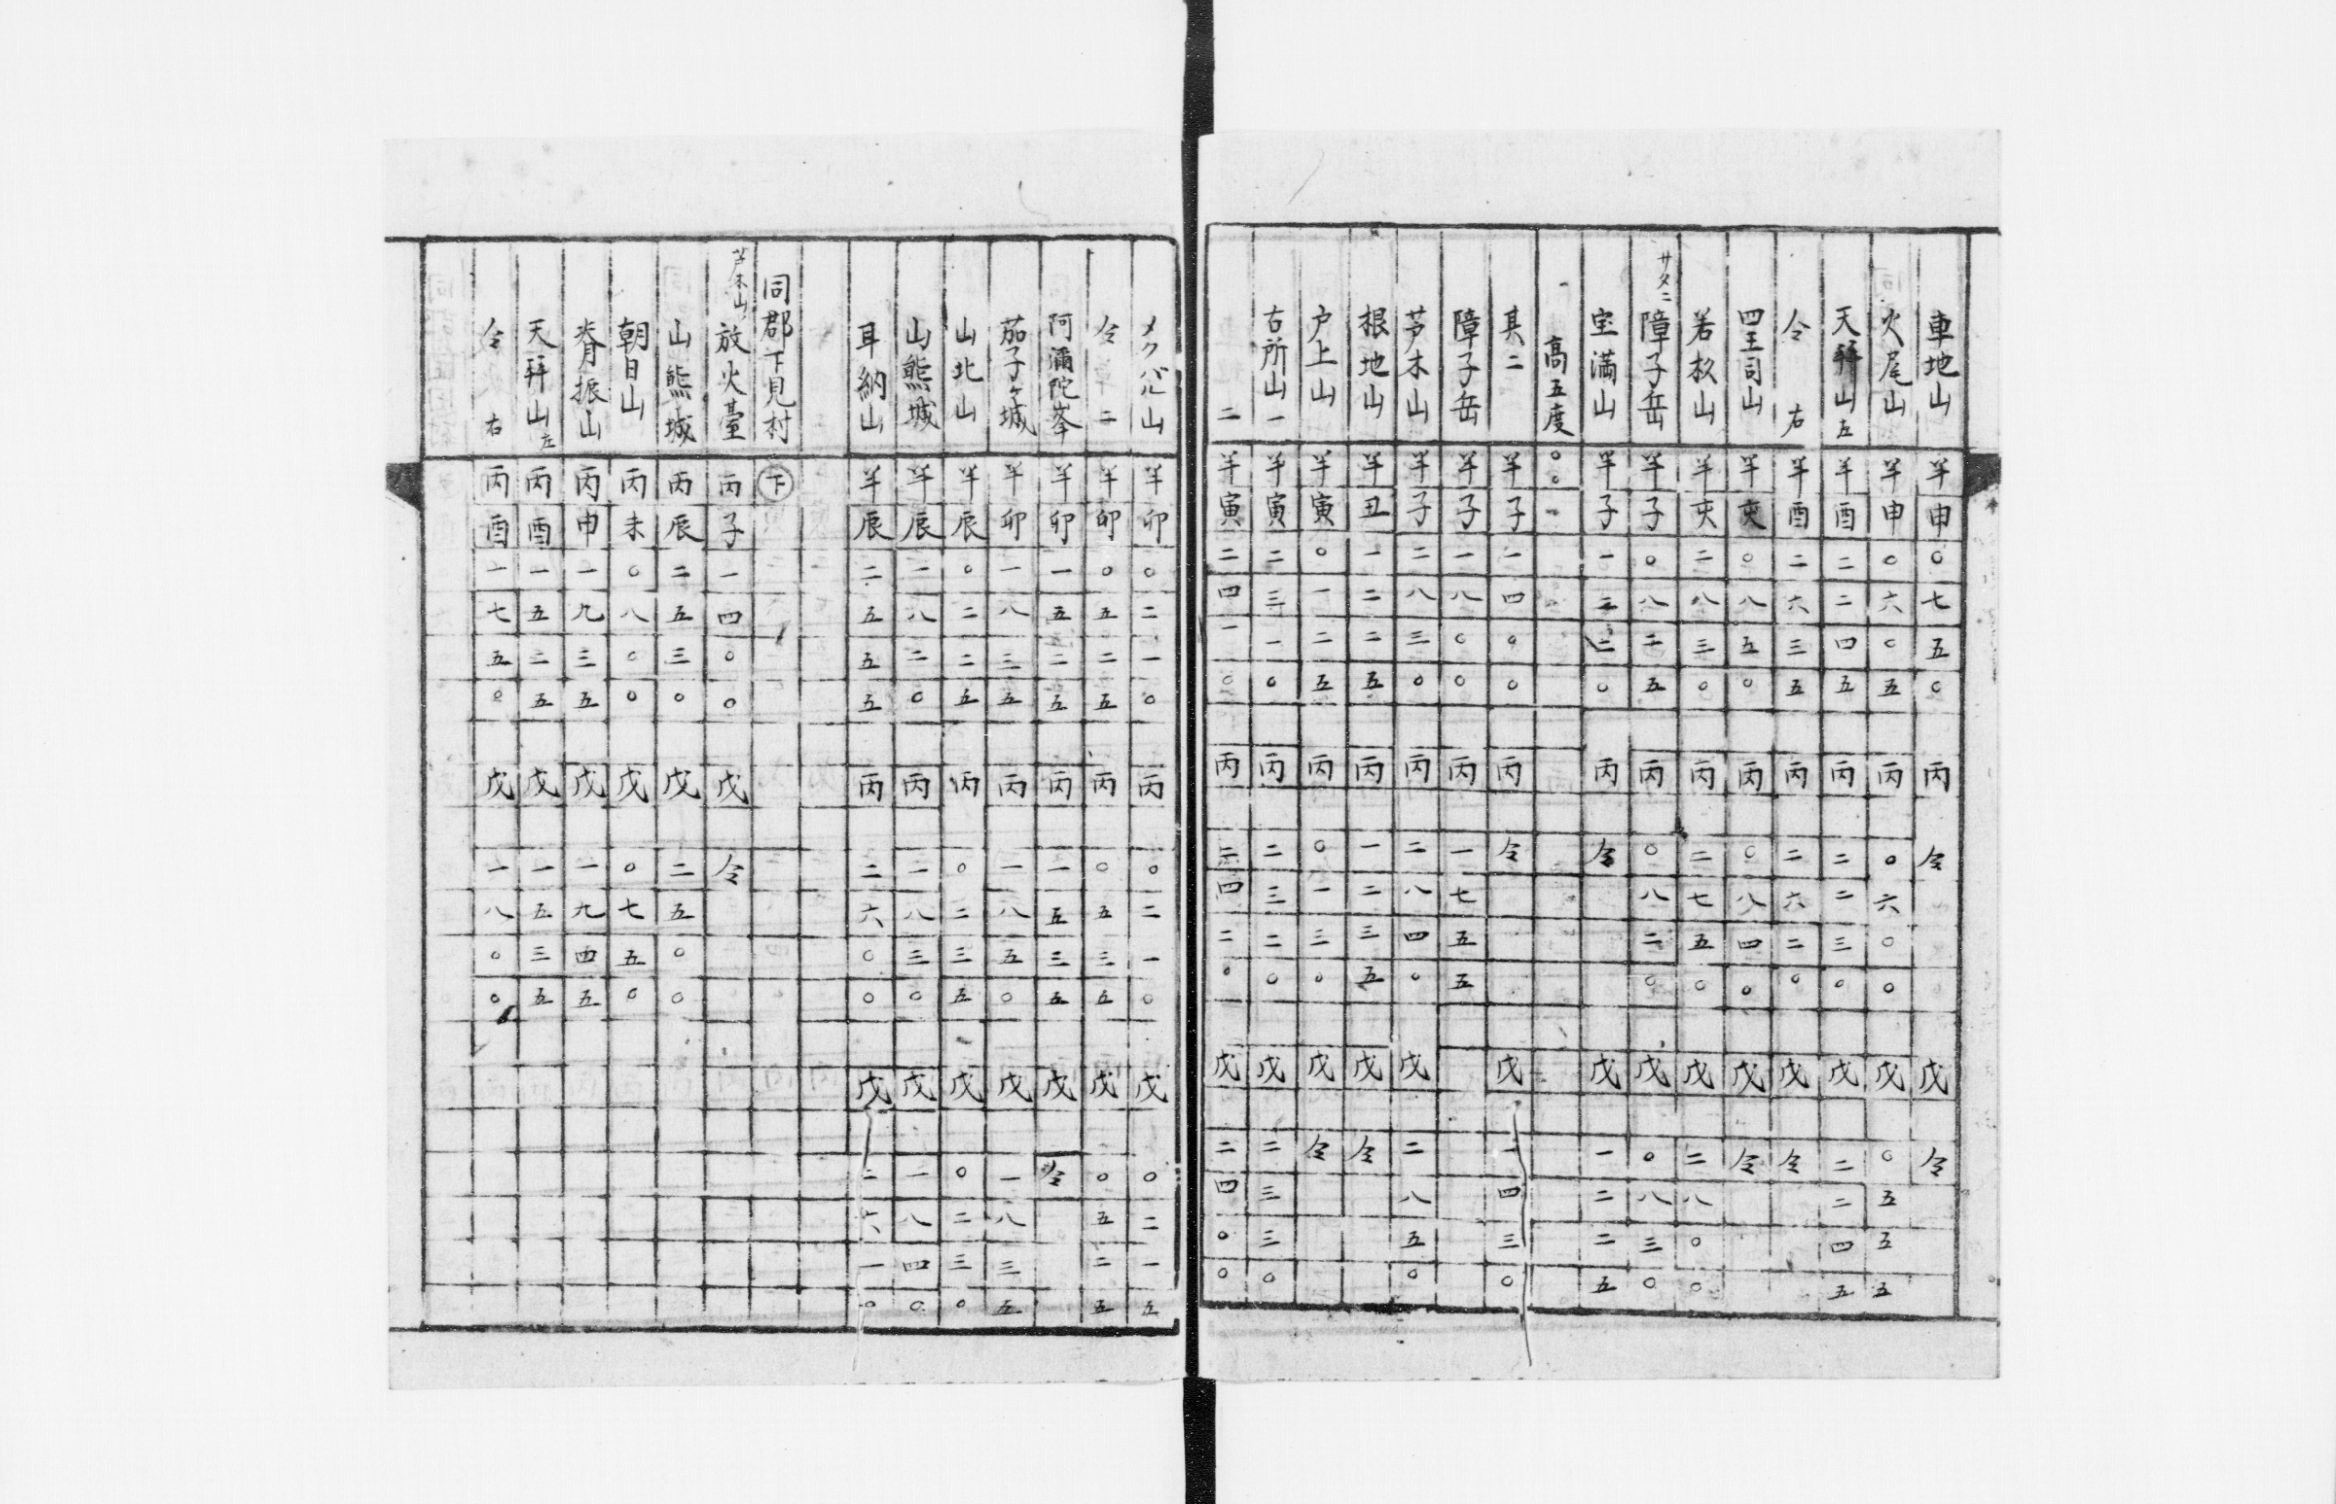 車地山 半申〇七五〇 丙 仝 戊 仝
火尾山 半申〇六〇五 丙〇六〇〇 戊〇五五五
天拜山左 半酉二二四五 丙二二三〇 戊二二四五
仝 右 半酉二六三五 丙二六二〇 戊仝
四王司山 半亥〇八五〇 丙〇八四〇 戊仝
若杦山 半亥二八三〇 丙二七五〇 戊二八〇〇
サタニ 障子岳 半子〇八二五 丙〇八二〇 戊〇八三〇
宝満山 半子一二二〇 丙仝 戊一二二五
高五度
其二 半子一四〇〇 丙仝 戊一四三〇
障子岳 半子一八〇〇 丙一七五五
芦木山 半子二八三〇 丙二八四〇 戊二八五〇
根地山 半丑一二二五 丙一二三五 戊仝
户上山 半寅〇一二五 丙〇一三〇 戊仝
古所山一 半寅二三一〇 丙二三二〇 戊二三三〇
二 半寅二四一〇 丙二四二〇 戊二四〇〇
メクバル山 半卯〇二一〇 丙〇二一〇 戊〇二一五
仝 二 半卯〇五二五 丙〇五三五 戊〇五二五
阿彌陀峯 半卯一五二五 丙一五三五 戊仝
茄子ヶ城 半卯一八三五 丙一八五〇 戊一八三五
山北山 半辰〇二二五 丙〇二三五 戊〇二三〇
山熊城 半辰一八二〇 丙一八三〇 戊一八四〇
耳納山 半辰二五五五 丙二六〇〇 戊二六一〇
同郡下見村 下
芦木山 放火臺 丙子一四〇〇 戊仝
山熊城 丙辰二五三〇 戊二五〇〇
朝日山 丙未〇八〇〇 戊〇七五〇
脊振山 丙申一九三五 戊一九四五
天拜山左 丙酉一五二五 戊一五三五
仝 右 丙酉一七五〇 戊一八〇〇